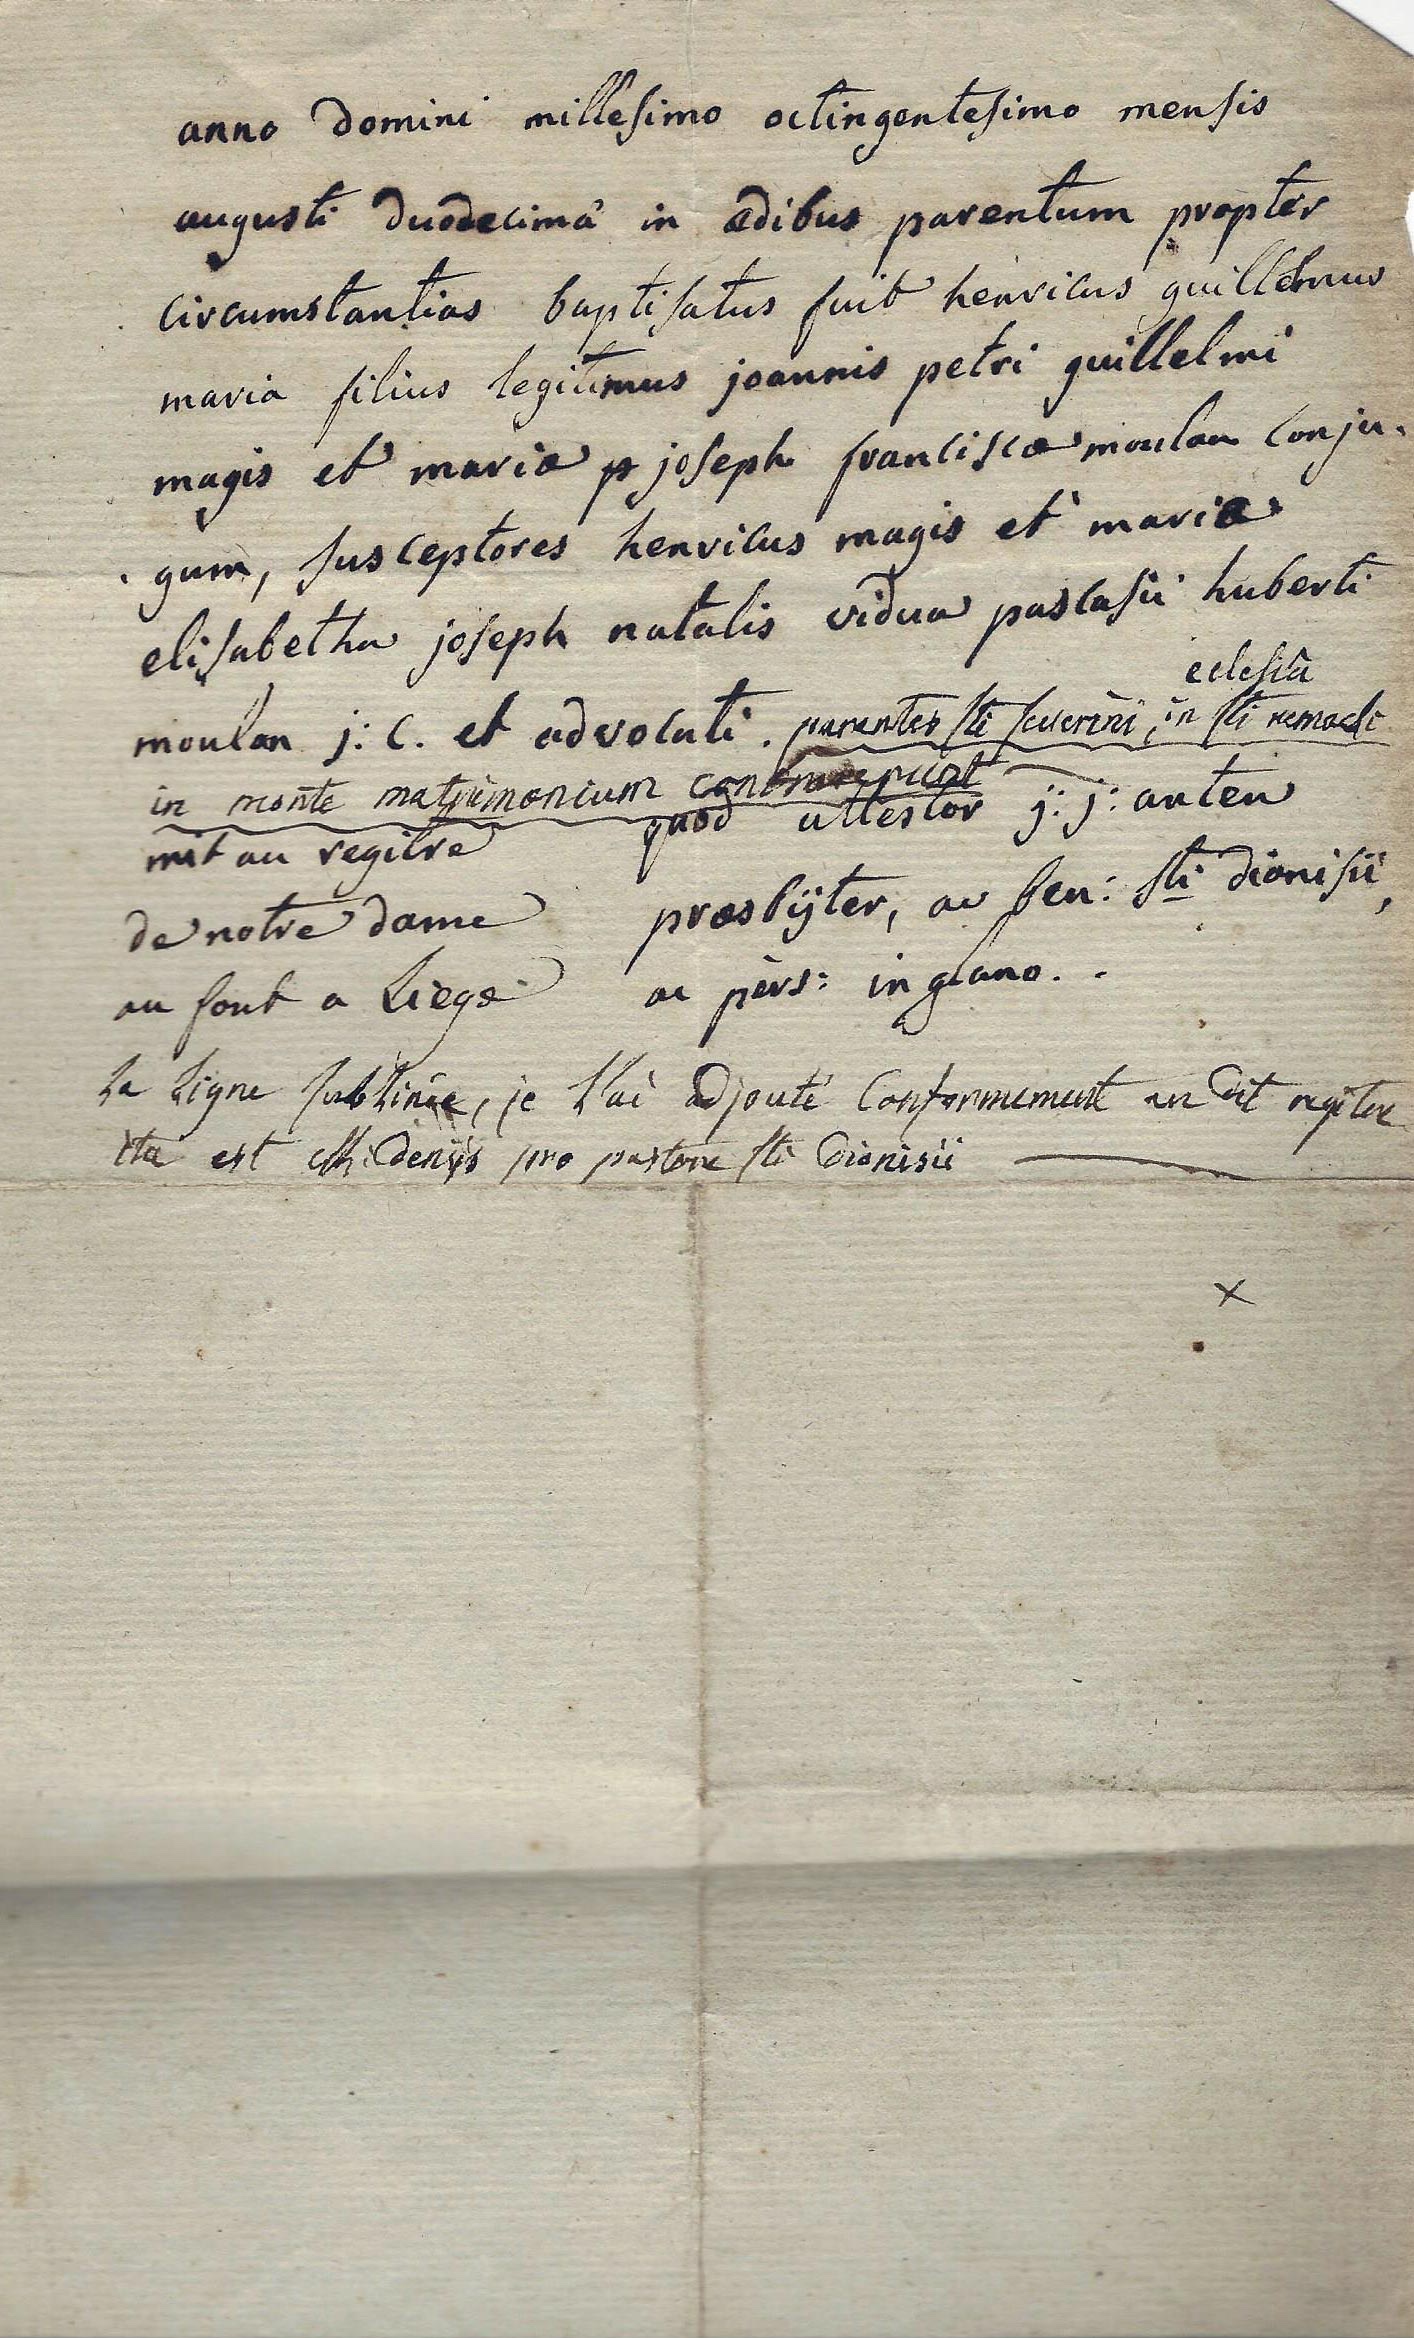 anno domini millesimo octingentesimo mensis
augusti duodecimâ in ædibus parentum propter
circumstantias baptisatus fuit henricus guillelmus
maria filius legitimus joannis petri guillelmi
magis et mariæ joseph franciscæ moulan conju-
gum, susceptores henricus magis et maria
elisabetha joseph natalis vidua pascasii huberti
eclesiâ
moulan j: c. et advocati. parentes sti severini, in sti remacli
in monte matrimonium
quod attestor j: j: anten
mit au regitre
de notre dame presbijter, ac ben: sti dionisii,
au font a Liege ac pers: in glano.
La Ligne subLinée, je L'ai adjouté Conformement au dit regitre
ita est denijs pro pastore sti Dionisii
x